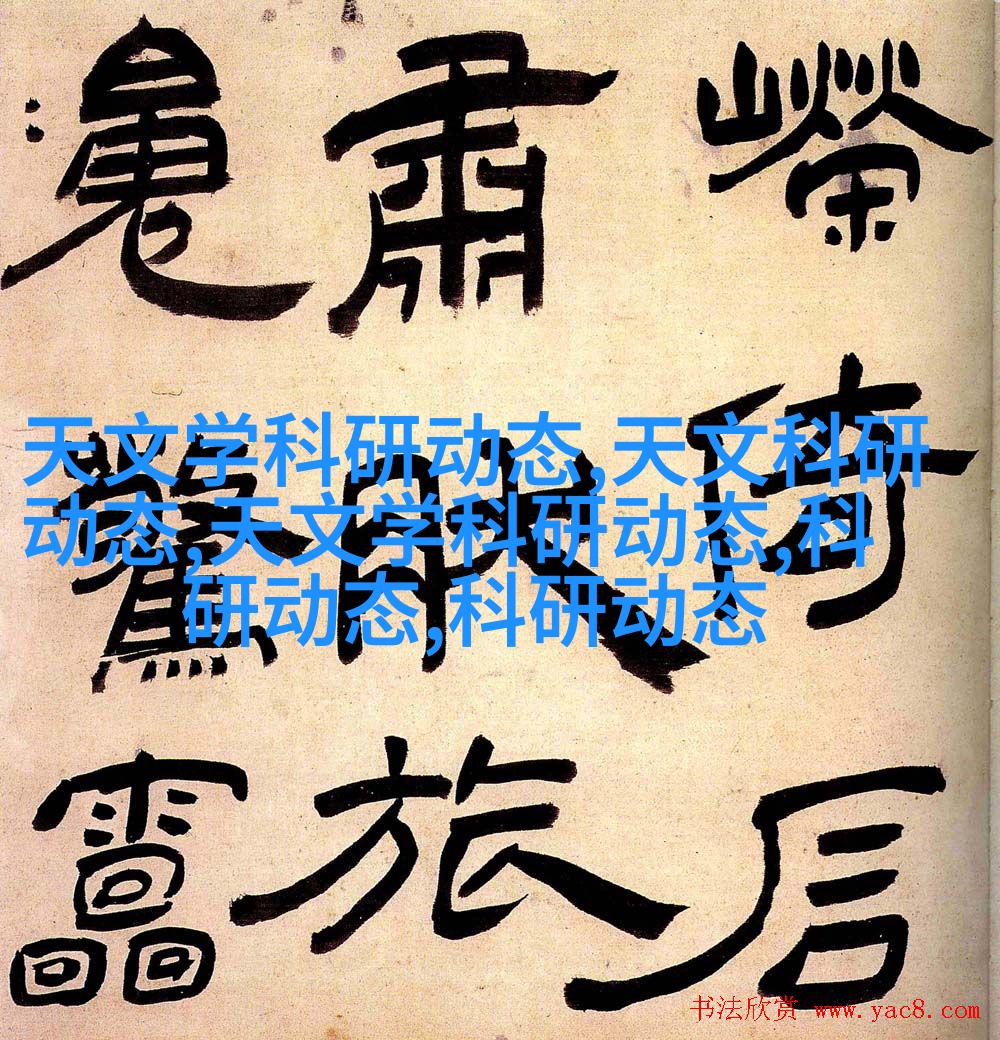 天文学科研动态,天文科研
动态,天文学科研动态,科
研动态,科研动态
倚
肅旅
驚
书法欣赏 www.yac8.com